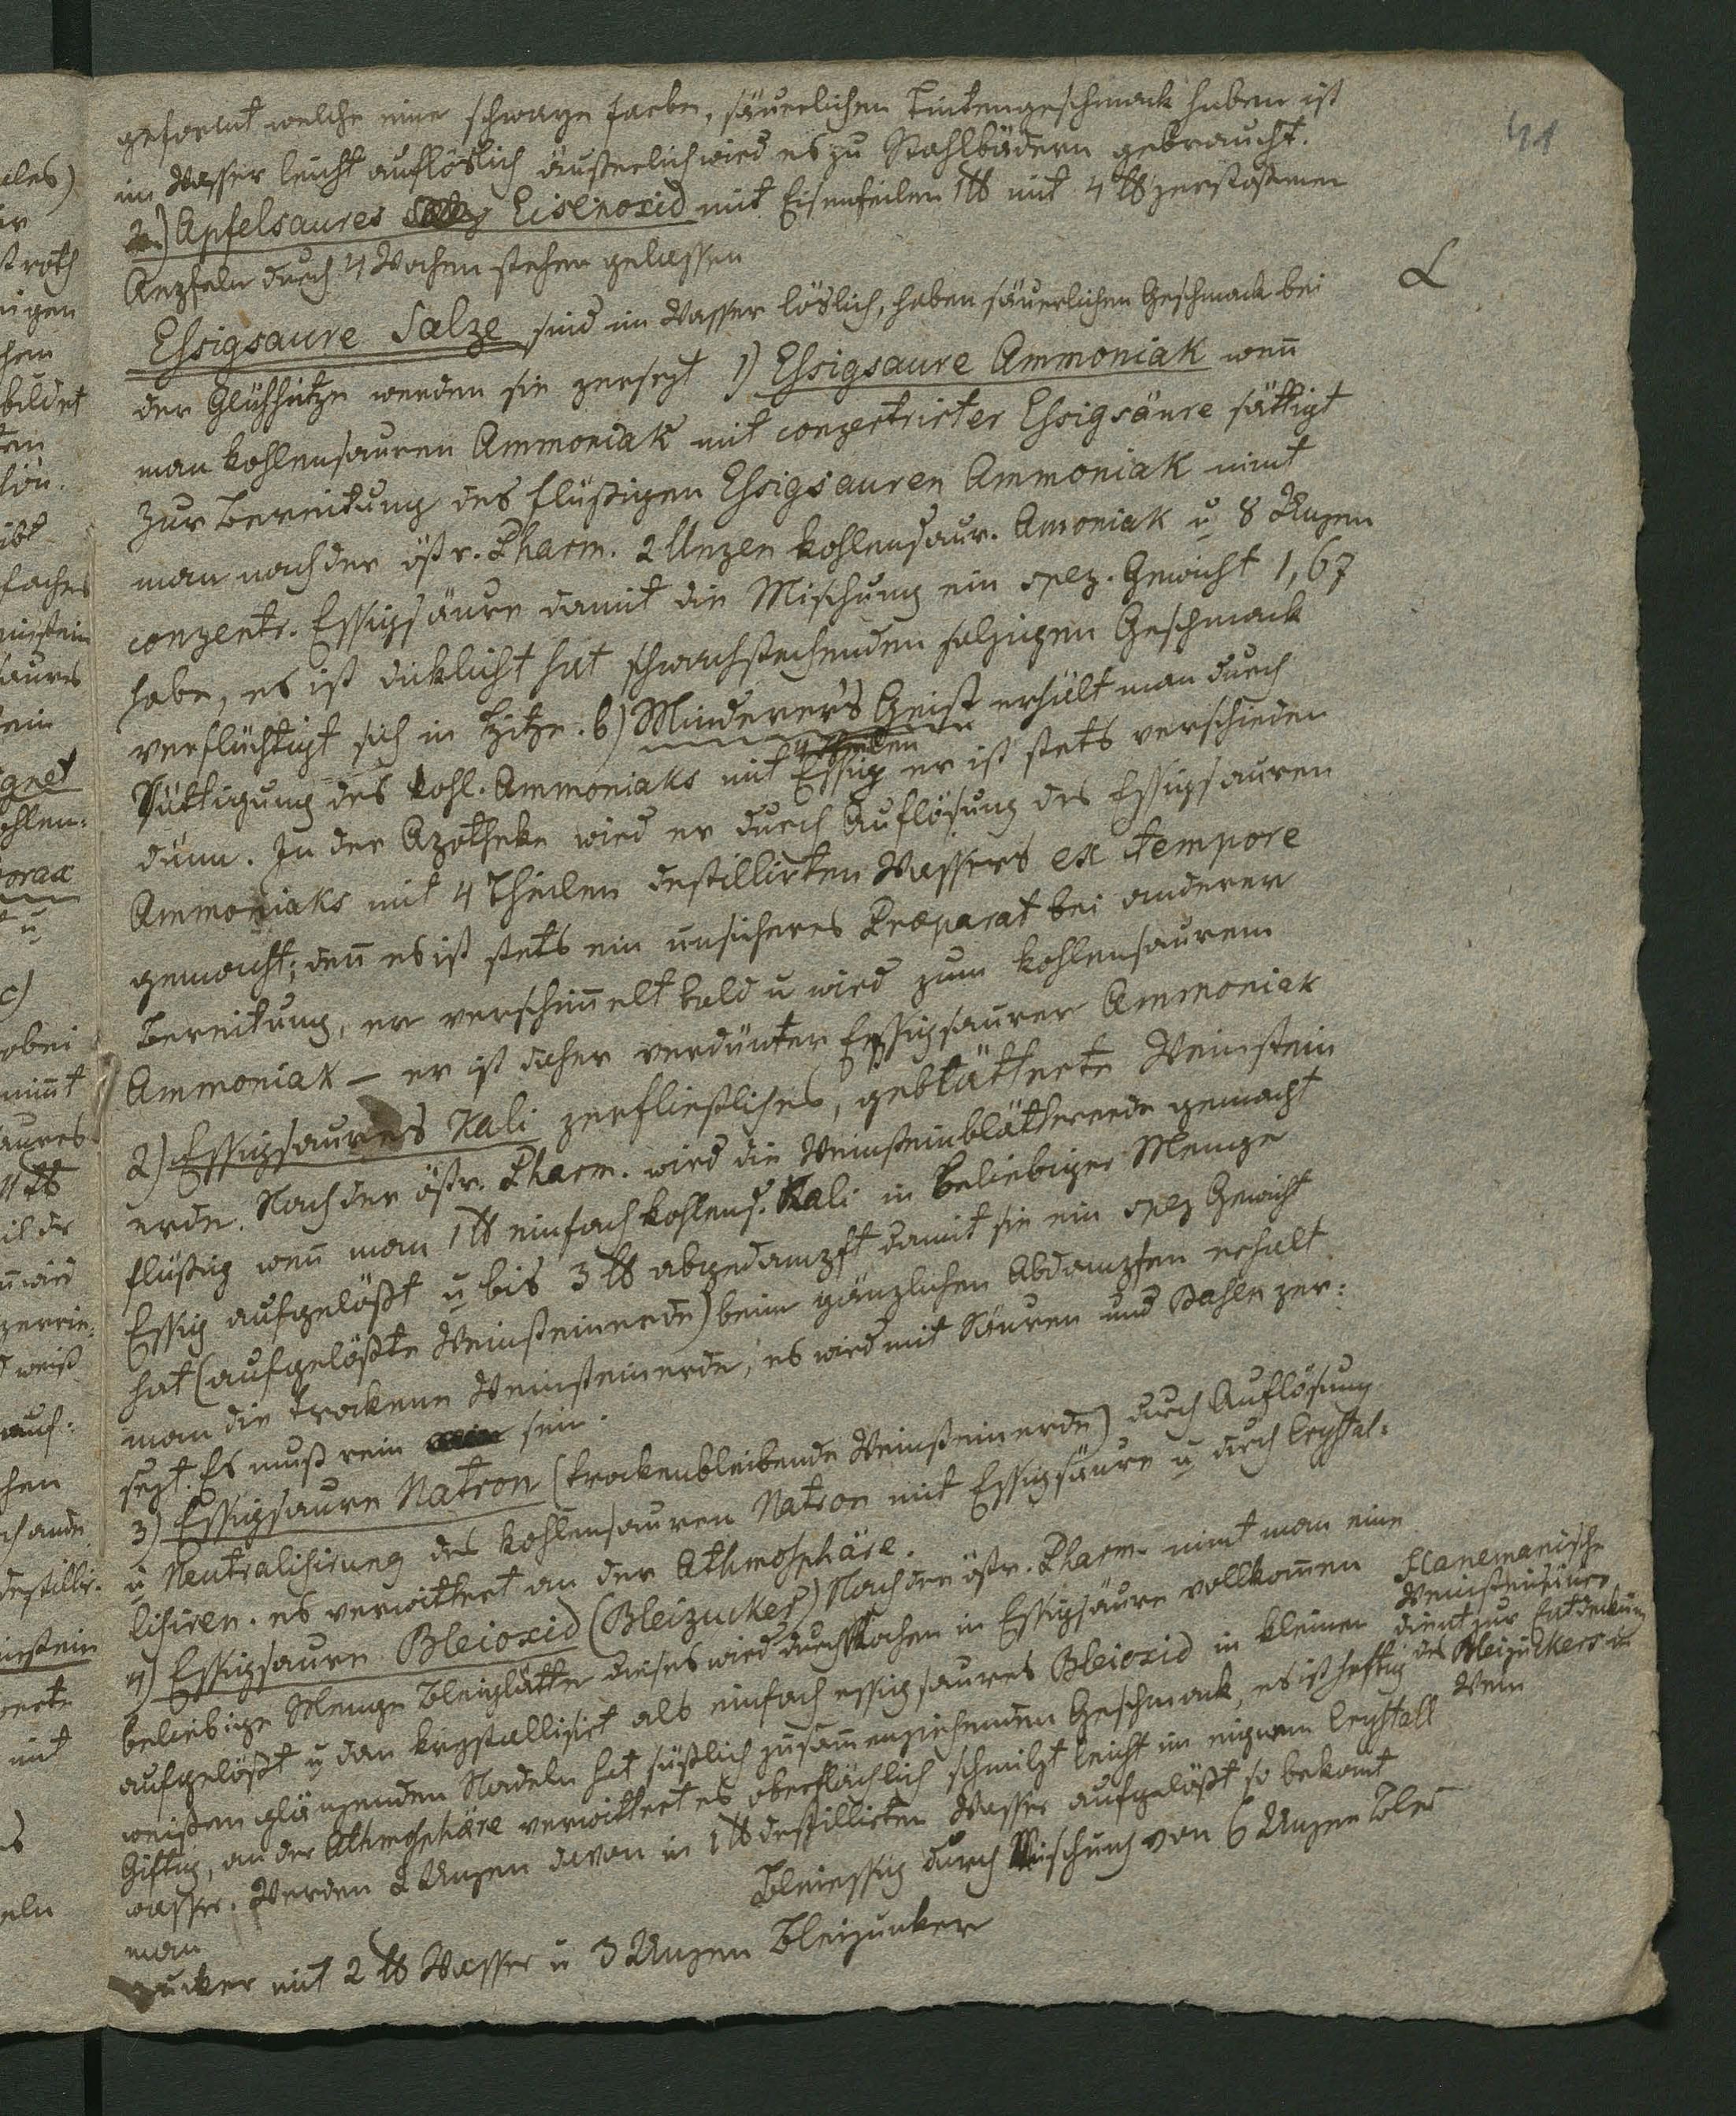 41
geformt welche eine schwarze Farbe, säuerlichen Tintengeschmack haben ist
im Wasser leicht auflöslich äußerlich wird es zu Stahlbädern gebraucht.
2.) Apfelsaures Eisenoxid mit Eisenfeilen 1 ℔ mit 4 ℔ zerstoßenen
Aepfeln durch 4 Wochen stehen gelassen
Essigsaure Salze sind im Wasser löslich, haben säuerlichen Geschmack bei
der Glühhitze werden sie zersezt 1) Essigsaure Ammoniak wen̄
man kohlensauren Ammoniak mit conzertrirter Essigsäure sättigt
Zur Bereitung des flüßigen Essigsauren Ammoniak nimt
man nach der östr. Pharm. 2 Unzen kohlensaur. Amoniak u 8 Unzen
conzentr. Essigsäure damit die Mischung ein spez. Gewicht 1,67
habe, es ist dicklicht hat schwachstechenden salzigen Geschmack
verflüchtigt sich in Hitze. b) Minderers Geist erhält man durch
Sättigung des kohl. Ammoniaks mit Essig er ist stets verschieden
dünn. In der Apotheke wird er durch Auflösung des Essigsauren
Ammoniaks mit 4 Theilen destillirten Wassers ex tempore
gemacht; den̄ es ist stets ein unsicheres Preparat bei anderer
Bereitung, er verschim̄elt bald u wird zum kohlensaurem
Ammoniak – er ist daher verdünter Essigsaurer Ammoniak
2) Essigsaures Kali zerfließliches, geblätterte Weinstein
erde. Nach der östr. Pharm. wird die Weinsteinblättererde gemacht
flüßig wen̄ man 1 ℔ einfach kohlens. Kali in beliebiger Menge
Essig aufgelößt u bis 3 ℔ abgedampft damit sie ein spez Gewicht
hat (aufgelößte Weinsteinerde) beim gänzlichen Abdampfen erhalt
man die trockene Weinsteinerde, es wird mit Säuren und zer:
sezt. Es muß rein sein.
3) Essigsaure Natron (trockenbleibende Weinsteinerde) durch Auflösung
u Neutralisirung des kohlensauren Natron mit Essigsäure u durch Crystal:
lisiren. es verwittert an der Athmosphäre.
4) Essigsaure Bleioxid (Bleizucker) Nach der östr. Pharm. nimt man eine
beliebige Menge Bleiglätte dieses wird durch Kochen in Essigsäure vollkom̄en
aufgelößt u dan krystallisirt als einfach essigsaures Bleioxid in kleinen
weißen glänzenden Nadeln hat süßlich zusam̄enziehenden Geschmack, es ist heftig
Giftig, an der Athmosphäre verwittert es oberflächlich schmilzt leicht im eignem Crystall
wasser. Werden 2 Unzen davon in 1 ℔ destillirten Wasser aufgelößt so bekomt
man Bleiessig durch Mischung von 6 Unzen Blei
zucker mit 2 ℔ Wasser u 3 Unzen Bleizucker
Hanemanische
dient zur Entdeckung
des Bleizuckers im
Wein